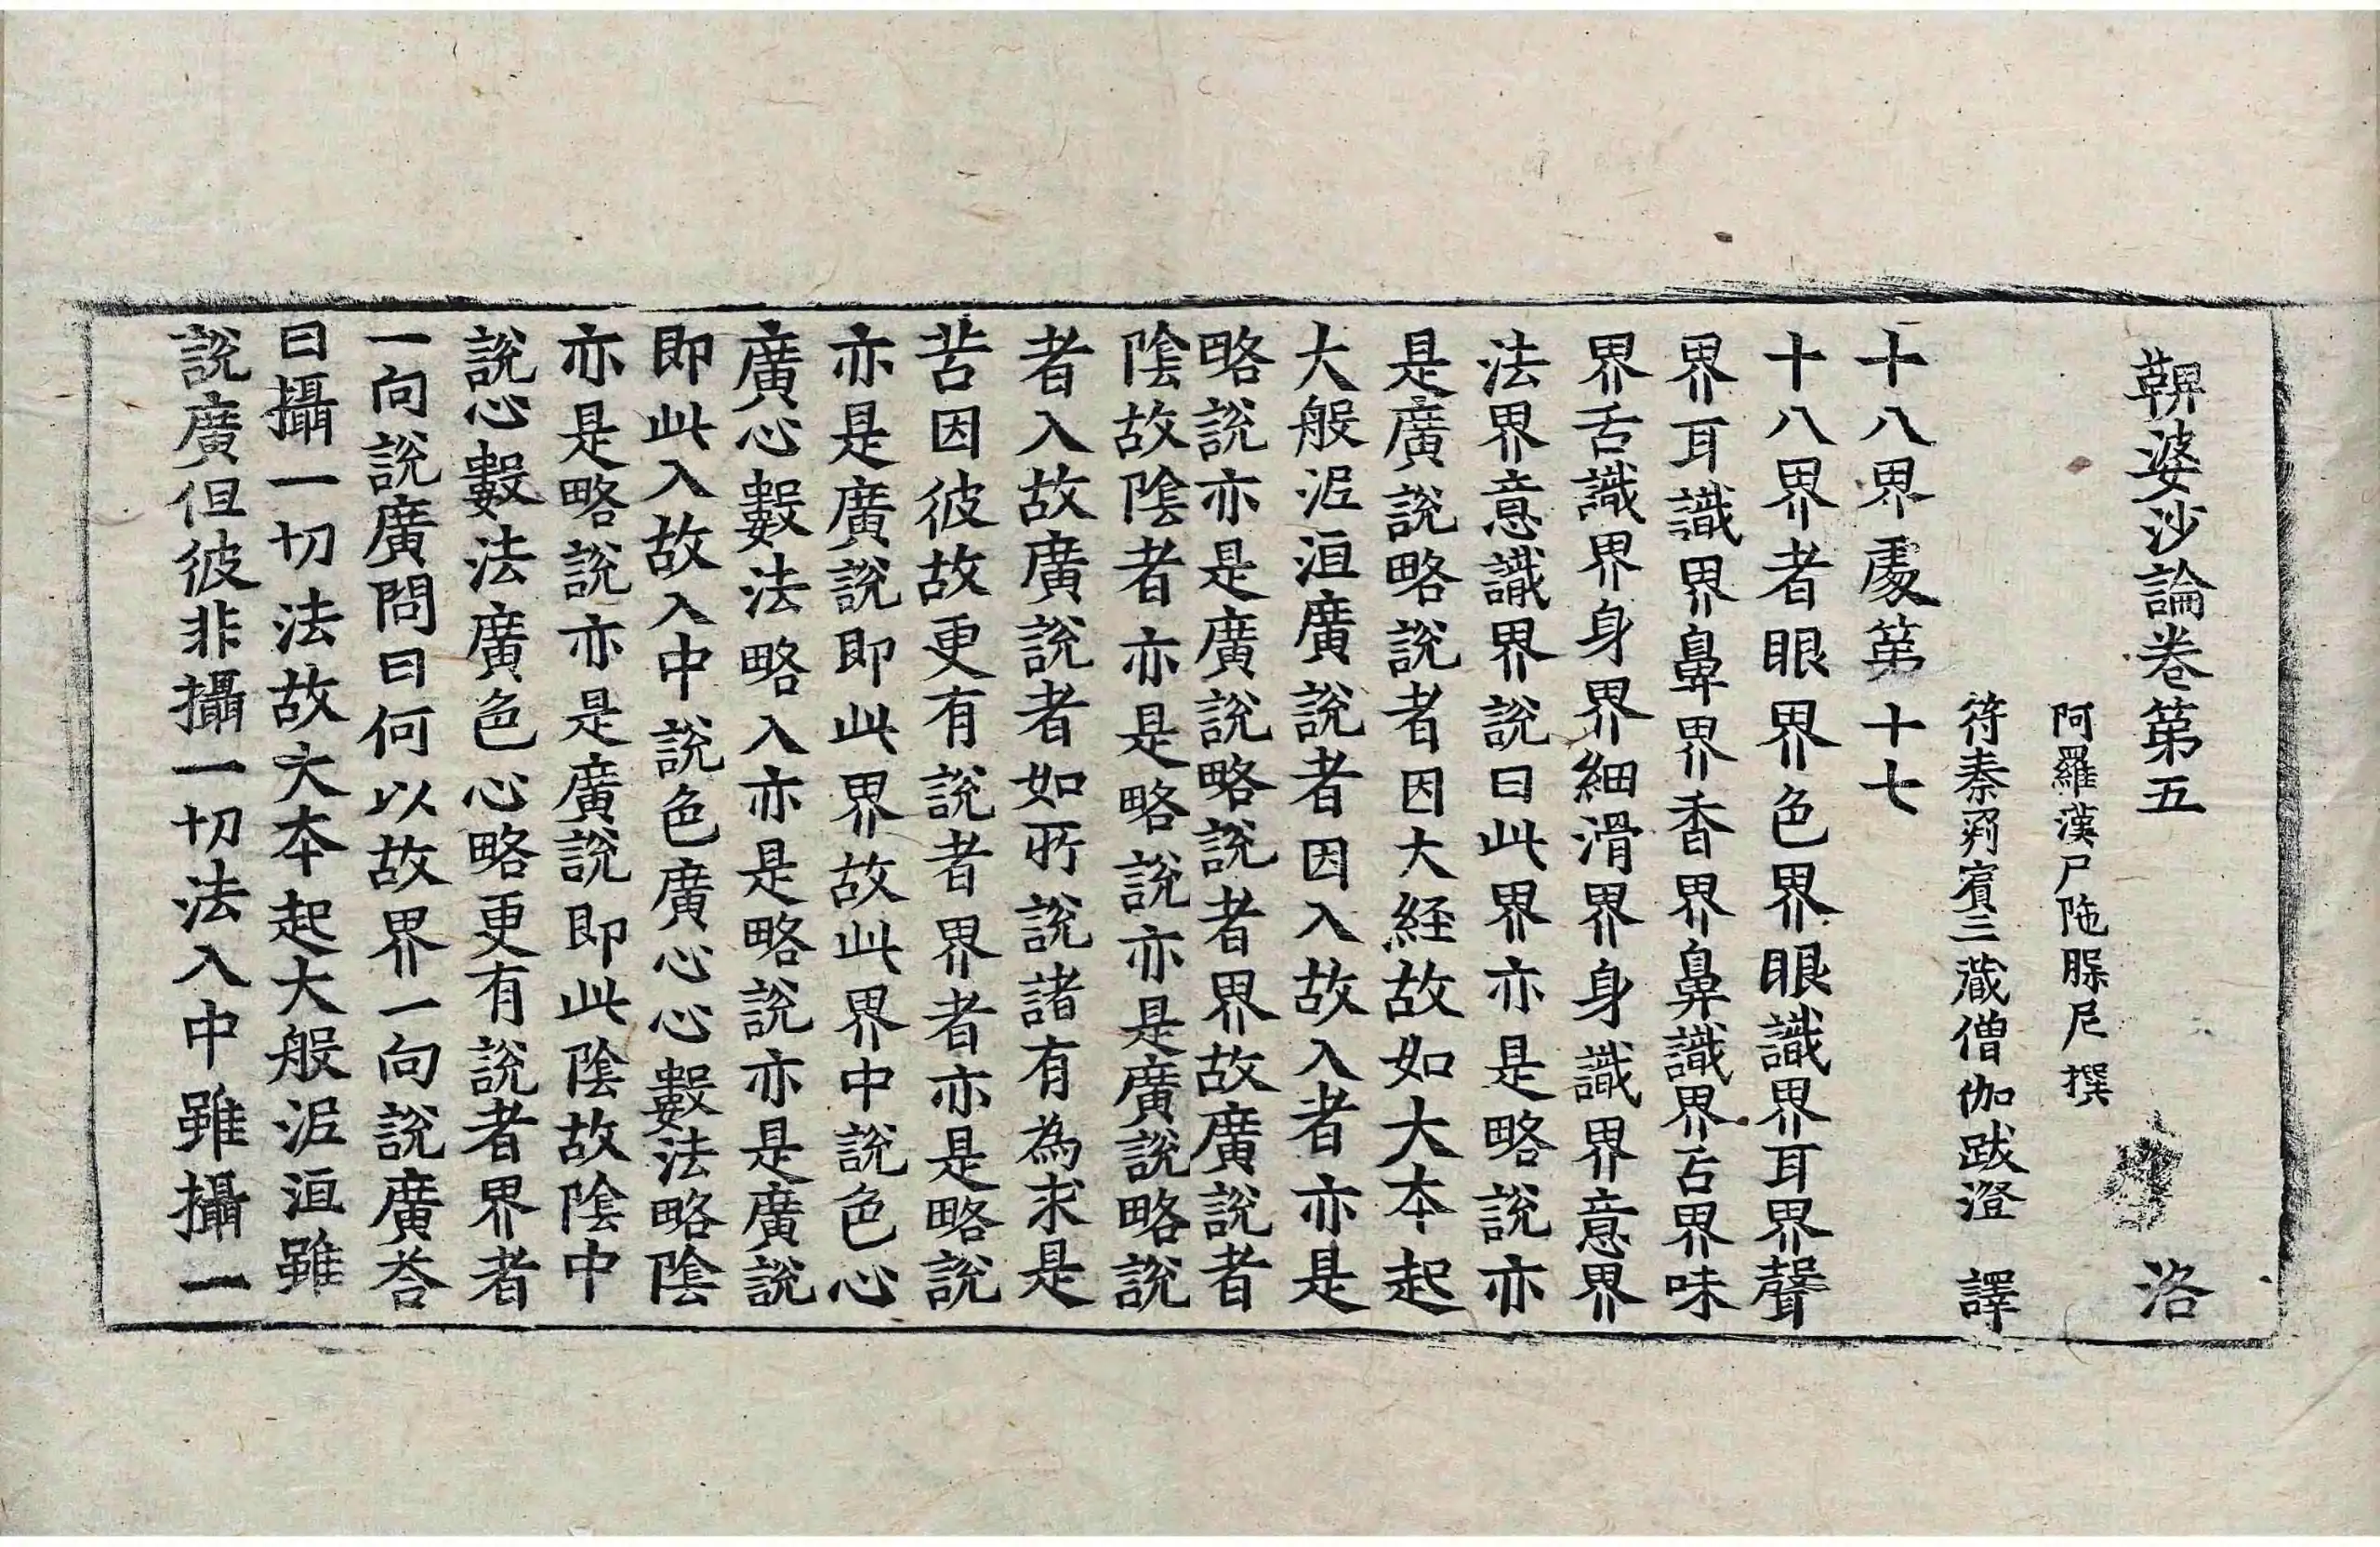 鞞婆沙論卷第五 洛
阿羅漢尸陁槃尼撰
符秦罽賓三藏僧伽跋澄 譯
十八界處第十七
十八界者眼界色界眼識界耳界聲
界耳識界鼻界香界鼻識界舌界味
界舌識界身界細滑界身識界意界
法界意識界說曰此界亦是略說亦
是廣說略說者因大経故如大本起
大般泥洹廣說者因入故入者亦是
略說亦是廣說略說者界故廣說者
陰故陰者亦是略說亦是廣說略說
者入故廣說者如所說諸有為求是
苦因彼故更有說者界者亦是略說
亦是廣說即此界故此界中說色心
廣心數法略入亦是略說亦是廣說
即此入故入中說色廣心心數法略陰
亦是略說亦是廣說即此陰故陰中
說心數法廣色心略更有說者界者
一向說廣問曰何以故界一向說廣荅
曰攝一切法故大本起大般泥洹雖
說廣但彼非攝一切法入中雖攝一